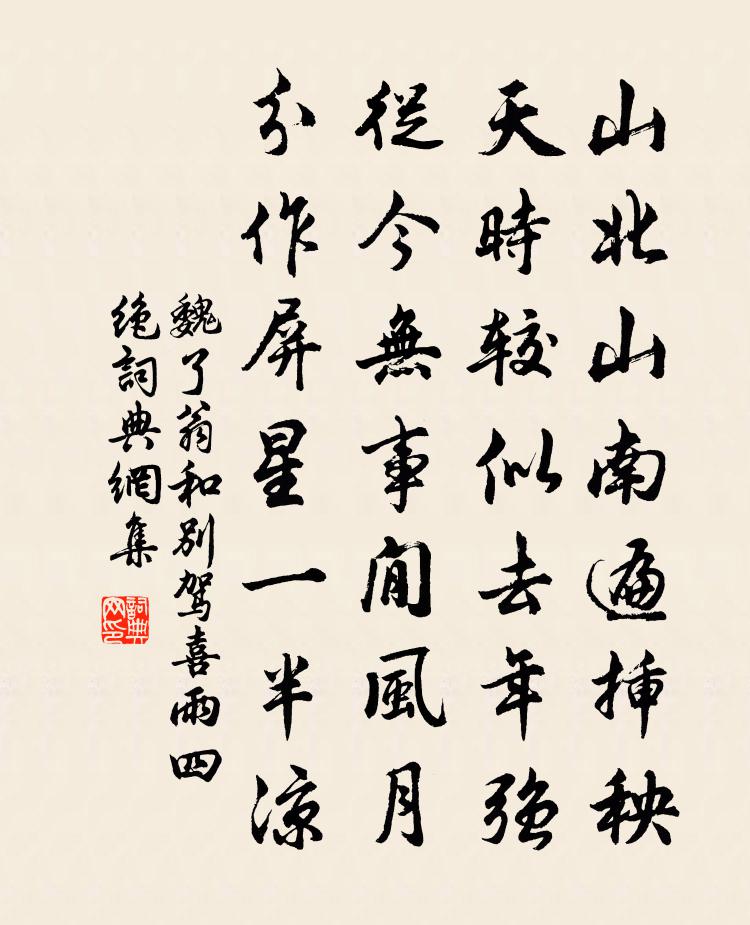 山北山南遍插秧
天時較似去年強
從今無事閒風月
分作屏星一半涼
魏了翁和別駕喜雨四
絕詞典網集
詞典網印